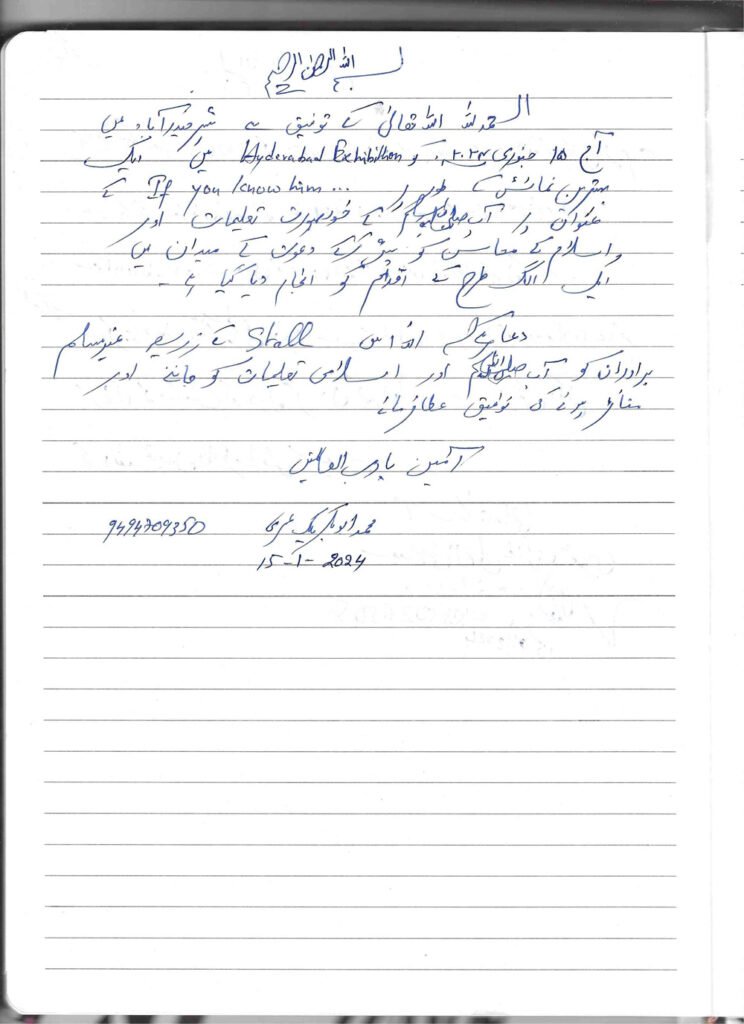 بسم اللہ الرحمن الرحیم
الحمد للہ اللہ تعالیٰ کے توفیق سے شہر حیدرآباد میں
آج ۱۵ جنوری ۲۰۲۴ کو Hyderabad Exhibition میں ایک
بہترین نمائش کے طور پر If you know him ... کے
عنوان پر آپ صلی اللہ علیہ وسلم کے خوبصورت تعلیمات اور
اسلام کے محاسن کو پیش کرکے دعوت کے میدان میں
ایک الگ طرح کے اقدام کو انجام دیا گیا ہے -
دعا ہے کہ اللہ اس Stall کے ذریعہ غیر مسلم
برادران کو آپ صلی اللہ علیہ وسلم اور اسلامی تعلیمات کو جاننے اور
متأثر ہونے کی توفیق عطا فرمائے
آمین یا رب العالمین
محمد ابو بکر بیگ عمری 9494709350
15-1-2024